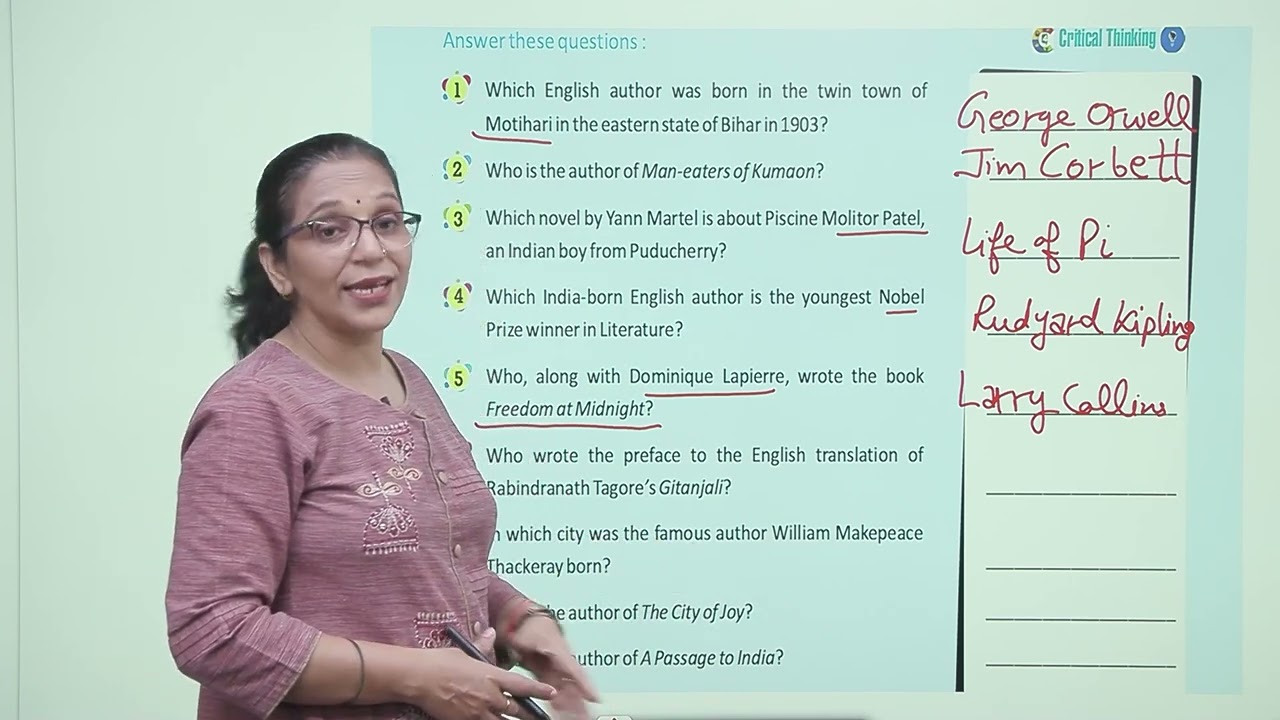 Answer these questions :
Critical Thinking
1 Which English author was born in the twin town of
Motihari in the eastern state of Bihar in 1903?
George Orwell
2 Who is the author of Man-eaters of Kumaon?
Jim Corbett
3 Which novel by Yann Martel is about Piscine Molitor Patel,
an Indian boy from Puducherry?
Life of Pi
4 Which India-born English author is the youngest Nobel
Prize winner in Literature?
Rudyard Kipling
5 Who, along with Dominique Lapierre, wrote the book
Freedom at Midnight?
Larry Collins
Who wrote the preface to the English translation of
Rabindranath Tagore's Gitanjali?
which city was the famous author William Makepeace
Thackeray born?
author of The City of Joy?
author of A Passage to India?